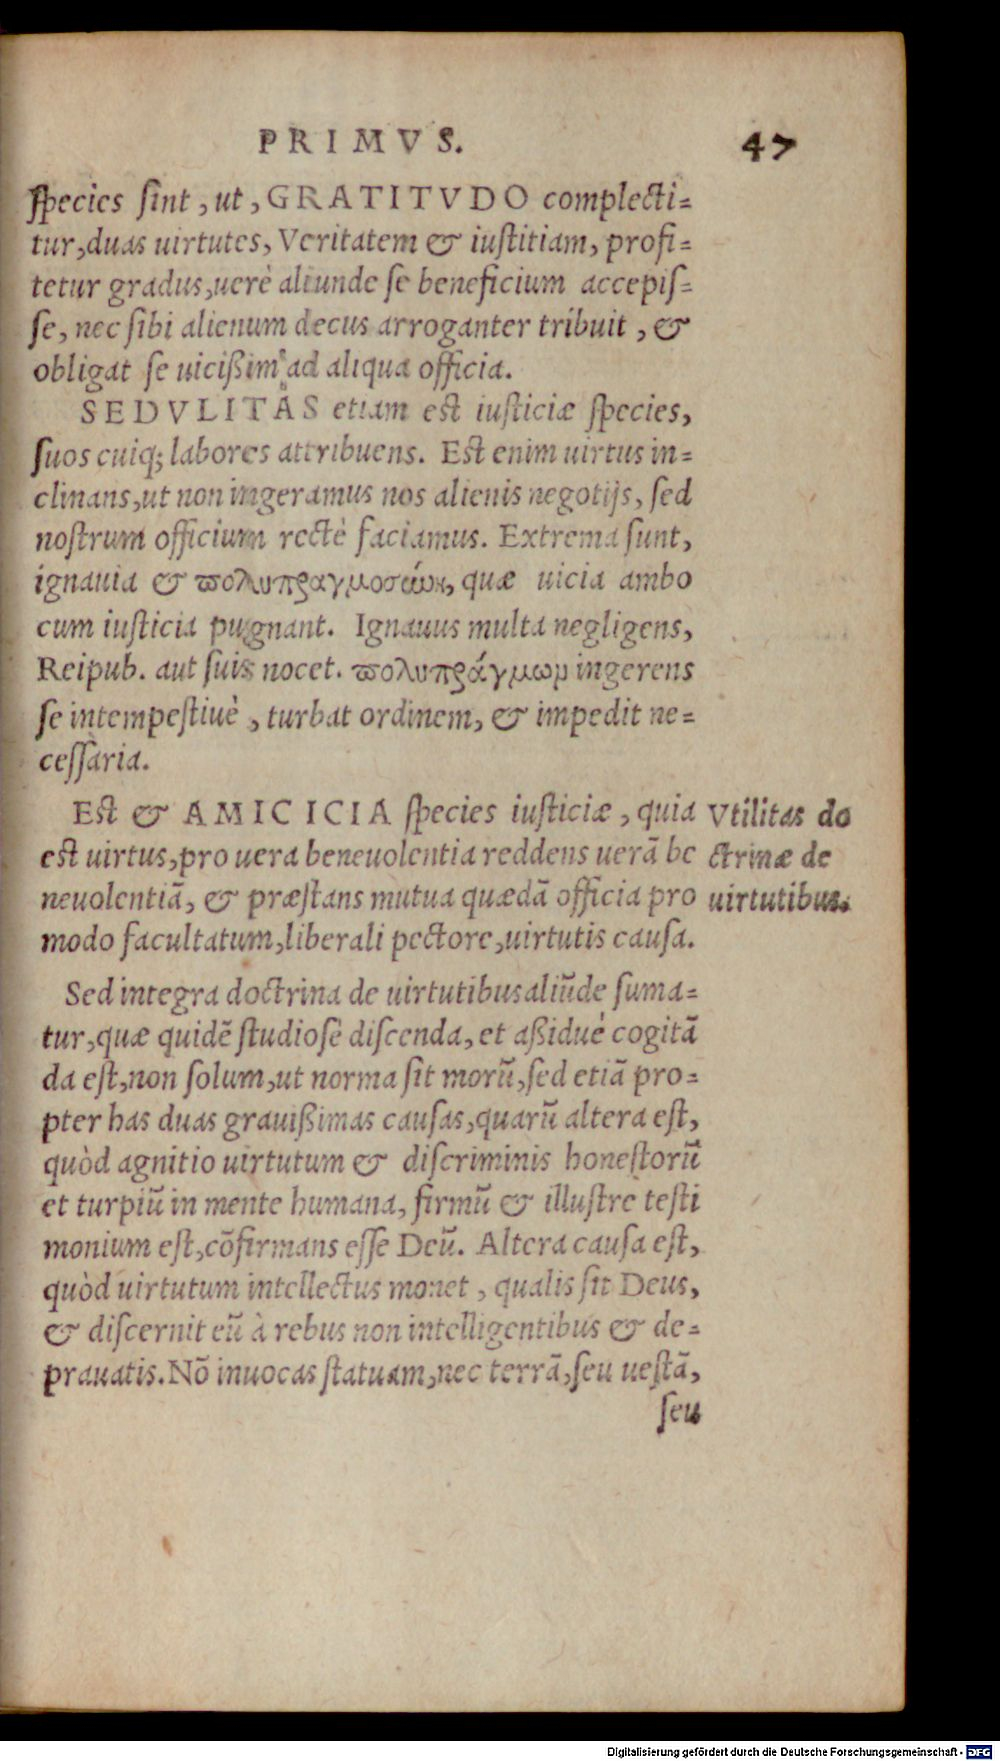 PRIMVS. 47
ſpecies ſint, ut, GRATITVDO complecti-
tur, duas uirtutes, Veritatem & iuſtitiam, profi-
tetur gradus, uerè aliunde ſe beneficium accepiſ-
ſe, nec ſibi alienum decus arroganter tribuit, &
obligat ſe uicißim ad aliqua officia.
SEDVLITAS etiam est iuſticiæ ſpecies,
ſuos cuiq; labores attribuens. Est enim uirtus in-
clinans, ut non ingeramus nos alienis negotijs, ſed
noſtrum officium rectè faciamus. Extrema ſunt,
ignauia & πολυπραγμοσύνη, quæ uicia ambo
cum iuſticia pugnant. Ignauus multa negligens,
Reipub. aut ſuis nocet. πολυπράγμωμ ingerens
ſe intempeſtiuè, turbat ordinem, & impedit ne-
ceſſaria.
Est & AMICICIA ſpecies iuſticiæ, quia
est uirtus, pro uera beneuolentia reddens uerā be
neuolentiā, & præſtans mutua quædā officia pro
modo facultatum, liberali pectore, uirtutis cauſa.
Vtilitas do
ctrinæ de
uirtutibus.
Sed integra doctrina de uirtutibus aliūde ſuma-
tur, quæ quidē ſtudioſè diſcenda, et aßiduè cogitā
da eſt, non ſolum, ut norma ſit morū, ſed etiā pro-
pter has duas grauißimas cauſas, quarū altera eſt,
quòd agnitio uirtutum & diſcriminis honeſtorū
et turpiū in mente humana, firmū & illuſtre teſti
monium eſt, cōfirmans eſſe Deū. Altera cauſa eſt,
quòd uirtutum intellectus monet, qualis ſit Deus,
& diſcernit eū à rebus non intelligentibus & de-
prauatis. Nō inuocas ſtatuam, nec terrā, ſeu ueſtā,
ſeu
Digitalisierung gefördert durch die Deutsche Forschungsgemeinschaft - DFG